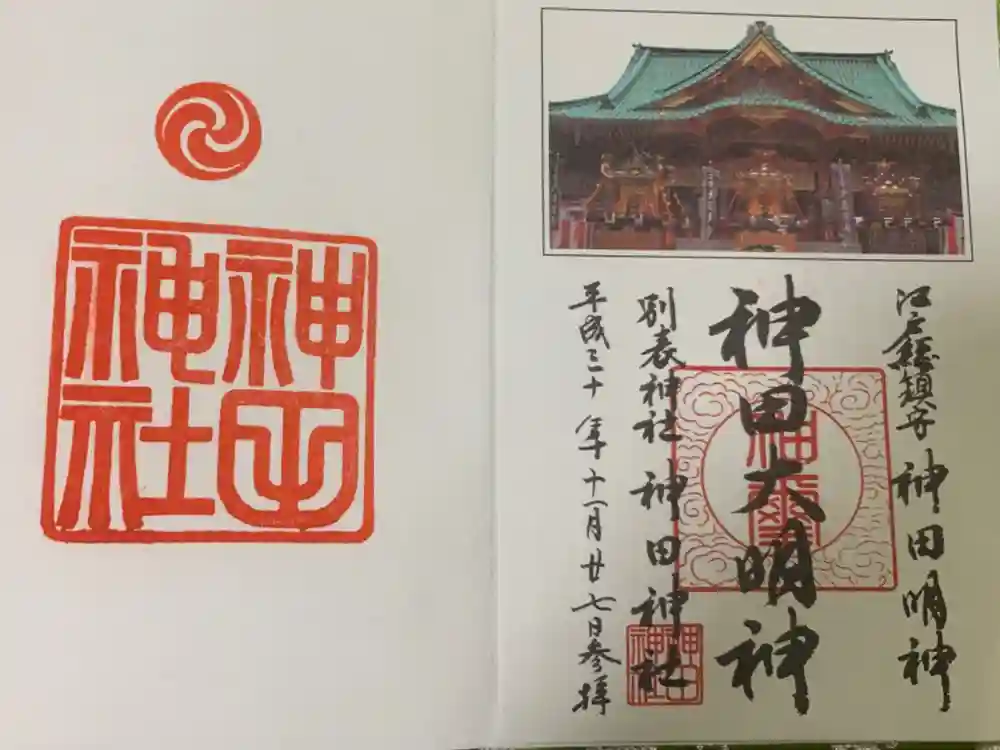 江戸総鎮守 神田明神
神田大明神
別表神社 神田神社
平成三十年十一月廿七日参拝
神璽
神田神社
神田神社